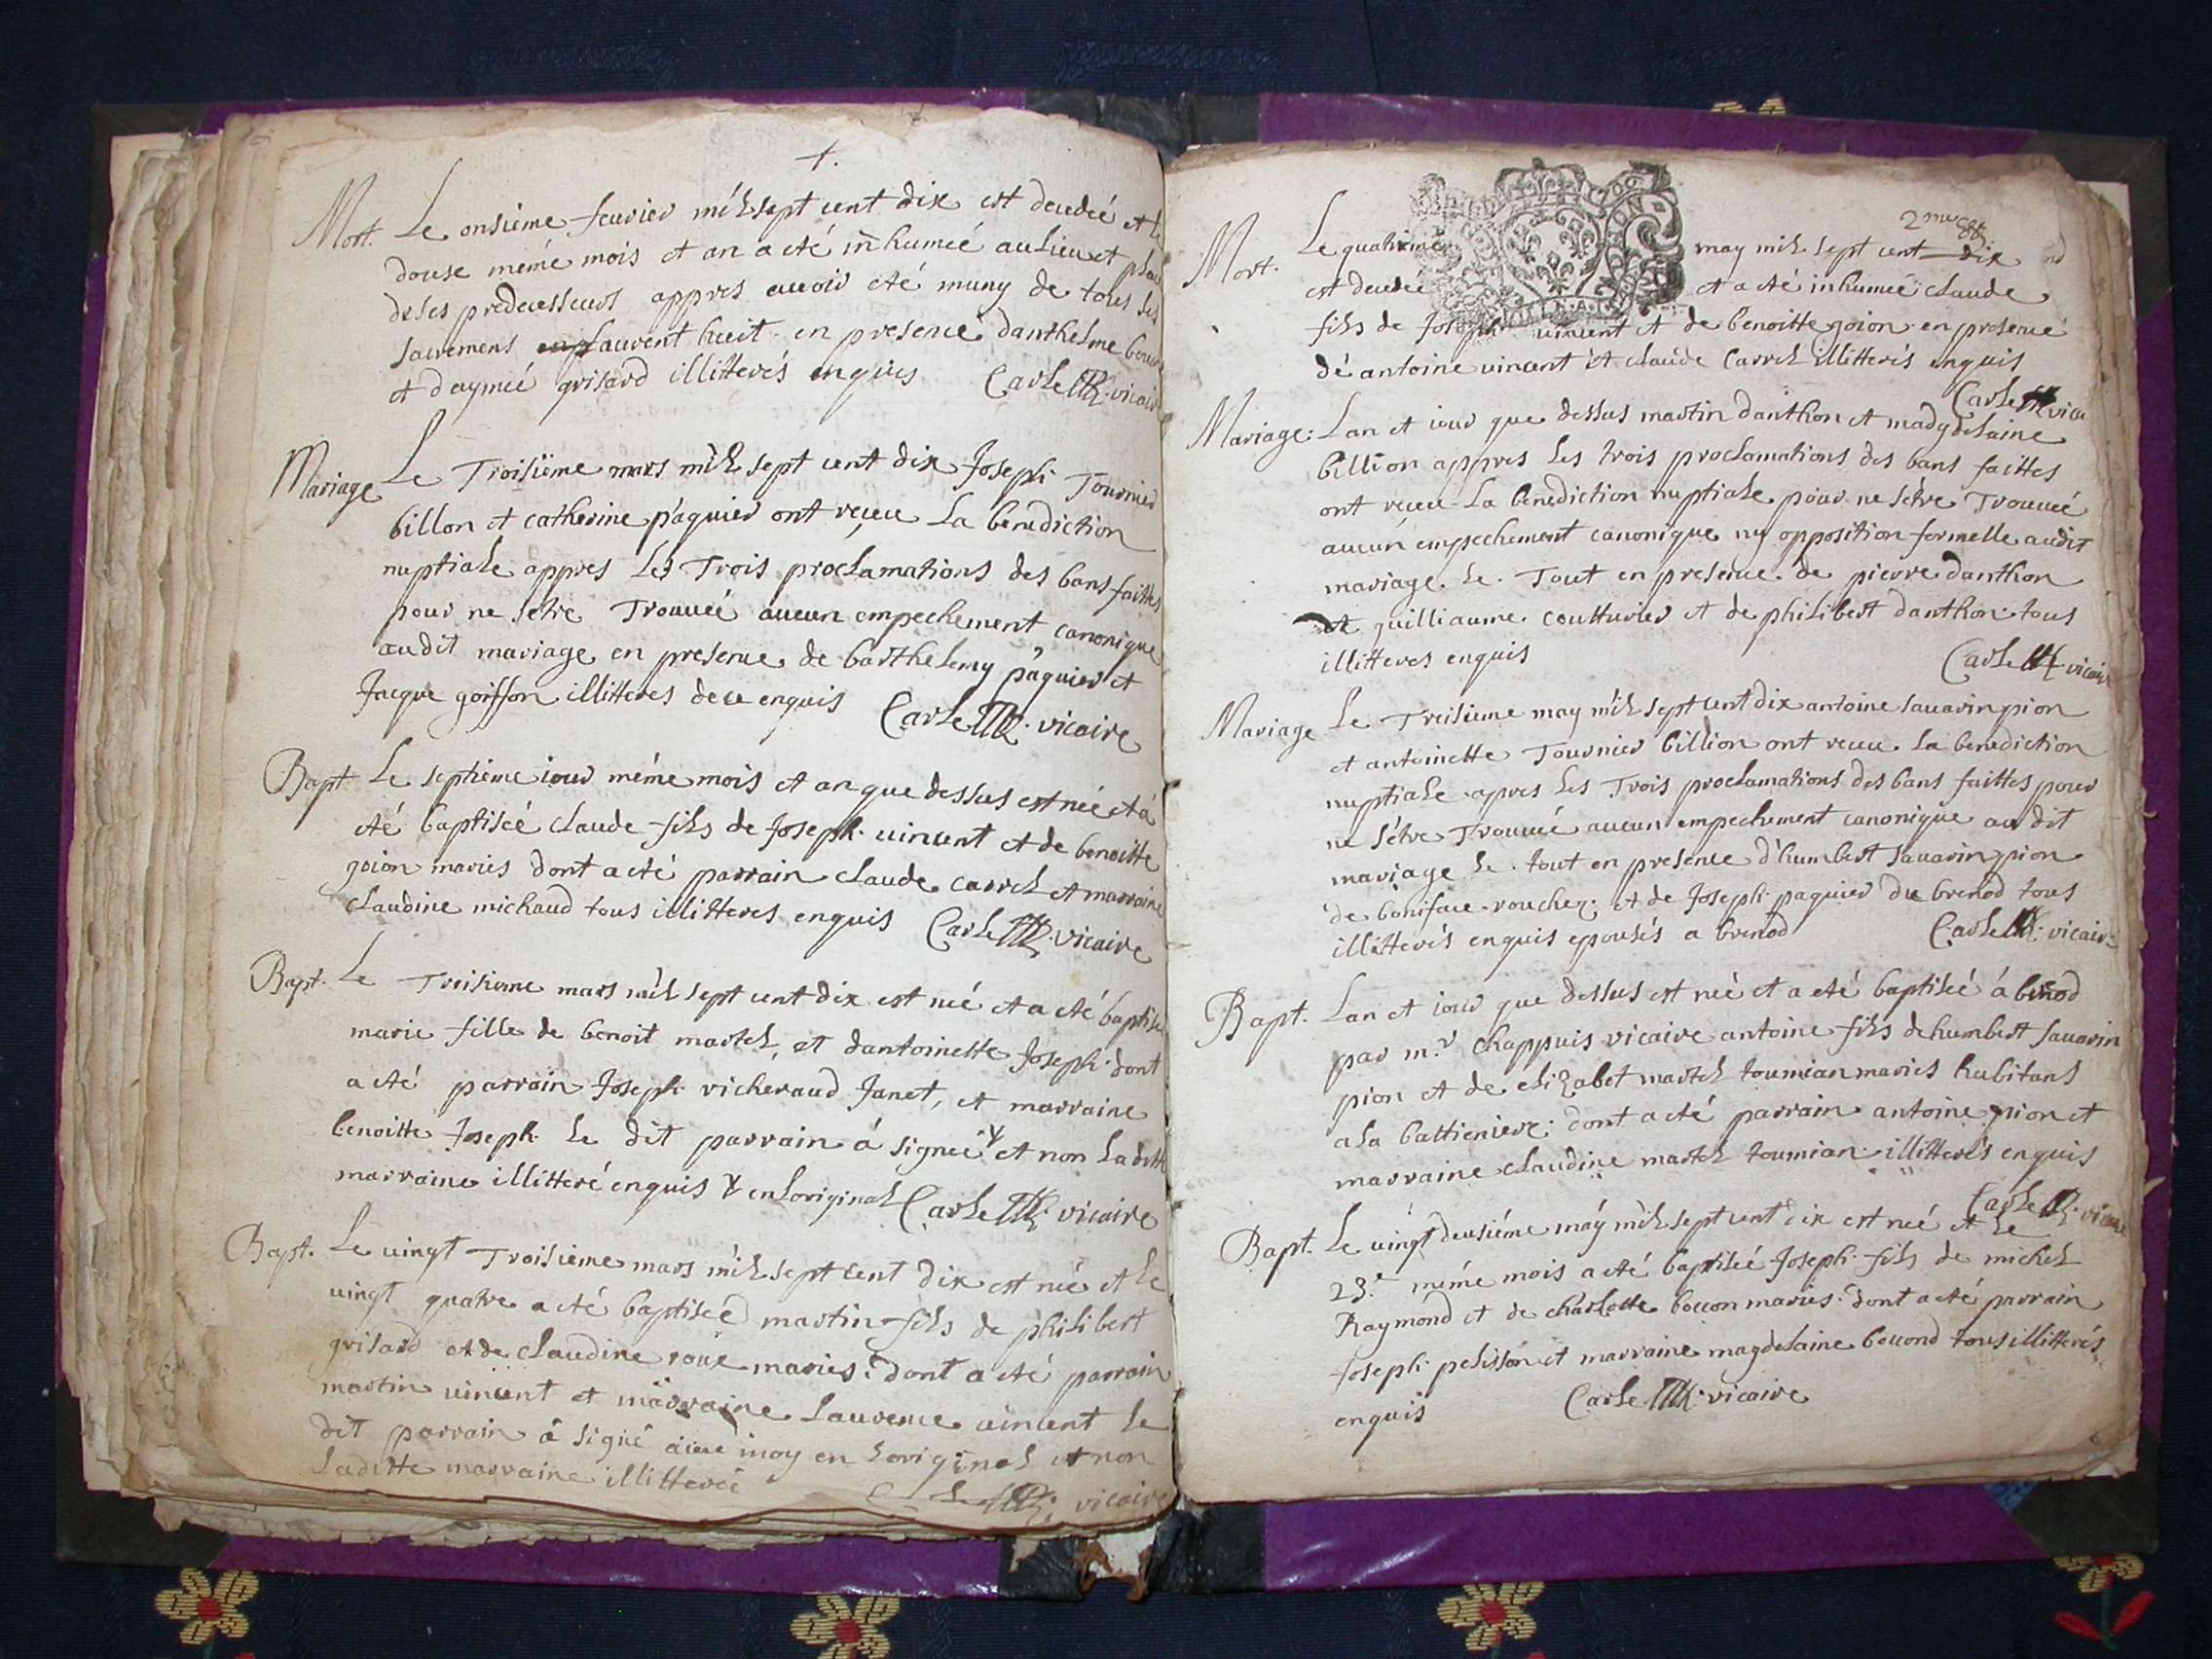 Mort. Le onsiéme feurier mil sept cent dix est decedeé et le
douse méme mois et an a eté inhumeé au lieu et place
de ses predecesseurs appres auoir eté muny de tous ses
sacremens en presence danthelme
et daymeé grisard illitterés enquis Carle vicaire
Mariage Le Troisiéme mars mil sept cent dix Joseph Tournier
billon et catherine paquier ont reçeu La benediction
nuptiale appres Les Trois proclamations des bans faittes
pour ne setre Trouueé aucun empechement canonique
audit mariage en presence de barthelemy paquier et
Jacque goiffon illitteres de ce enquis Carle vicaire
Bapt Le septiéme iour méme mois et an que dessus est neé et a
eté baptiseé claude fils de Joseph uincent et de benoitte
goion mariés dont a eté parrain claude carrel et marraine
claudine michaud tous illitteres enquis Carle vicaire
Bapt. Le Troisieme mars mil sept cent dix est neé et a eté baptiseé
marie fille de benoit martel, et dantoinette Joseph dont
a eté parrain Joseph vicheraud Janet, et marraine
benoitte Joseph Le dit parrain á signeé et non Laditte
marraine illitteré enquis en Loriginal Carle vicaire
Bapt. Le uingt Troisiéme mars mil sept cent dix est neé et le
uingt quatre a eté baptiseé martin fils de philibert
grisard et de claudine roux mariés dont a eté parrain
martin uincent et marraine Laurence uincent Le
dit parrain á signé auec moy en Loriginal et non
Laditte marraine illittereé vicaire
2me
Mort. Le quatrieme may mil sept cent dix
est decedeé et a eté inhumeé claude
fils de Joseph uincent et de benoitte goion en presence
dé antoine uincent et claude carrel illitterés enquis
Carle vicaire
Mariage: Lan et iour que dessus martin danthon et madgdelaine
billion appres Les trois proclamations des bans faittes
ont reçeu La benediction nuptiale pour ne sétre Trouueé
aucun empechement canonique ny opposition formelle audit
mariage. Le Tout en presence de pierre danthon
et guilliaume coutturier et de philibert danthon tous
illitteres enquis Carle vicaire
Mariage Le Troisieme may mil sept cent dix antoine sauarin pion
et antoinette Tournier billion ont receu La benediction
nuptiale apres Les Trois proclamations des bans faittes pour
ne sétre Trouueé aucun empechement canonique au dit
mariage Le tout en presence d'humbert sauarin pion
de boniface rouchez et de Joseph paquier du brenod tous
illitterés enquis epousés a brenod Carle vicaire
Bapt. Lan et iour que dessus est neé et a eté baptiseé á brenod
par m.r chappuis vicaire antoine fils dehumbert sauarin
pion et de elizabet martel toumian mariés habitans
a La dont a eté parrain antoine pion et
marraine claudine martel toumian illitterés enquis
Carle vicaire
Bapt. Le uingt deusiéme máy mil sept cent dix est neé et Le
23.e méme mois a eté baptiseé Joseph fils de michel
Raymond et de charlotte boccon mariés. dont a eté parrain
Joseph pelisson et marraine magdelaine boccond tous illitterés
enquis Carle vicaire